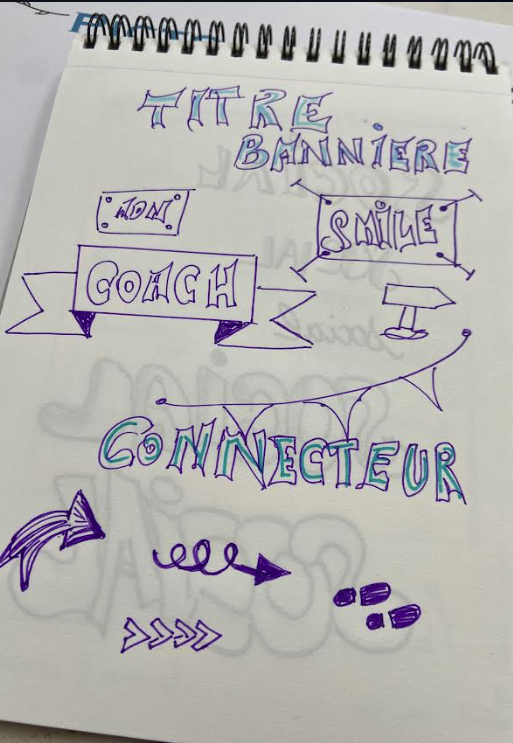 TITRE
BANNIERE
MON
SMILE
COACH
CONNECTEUR